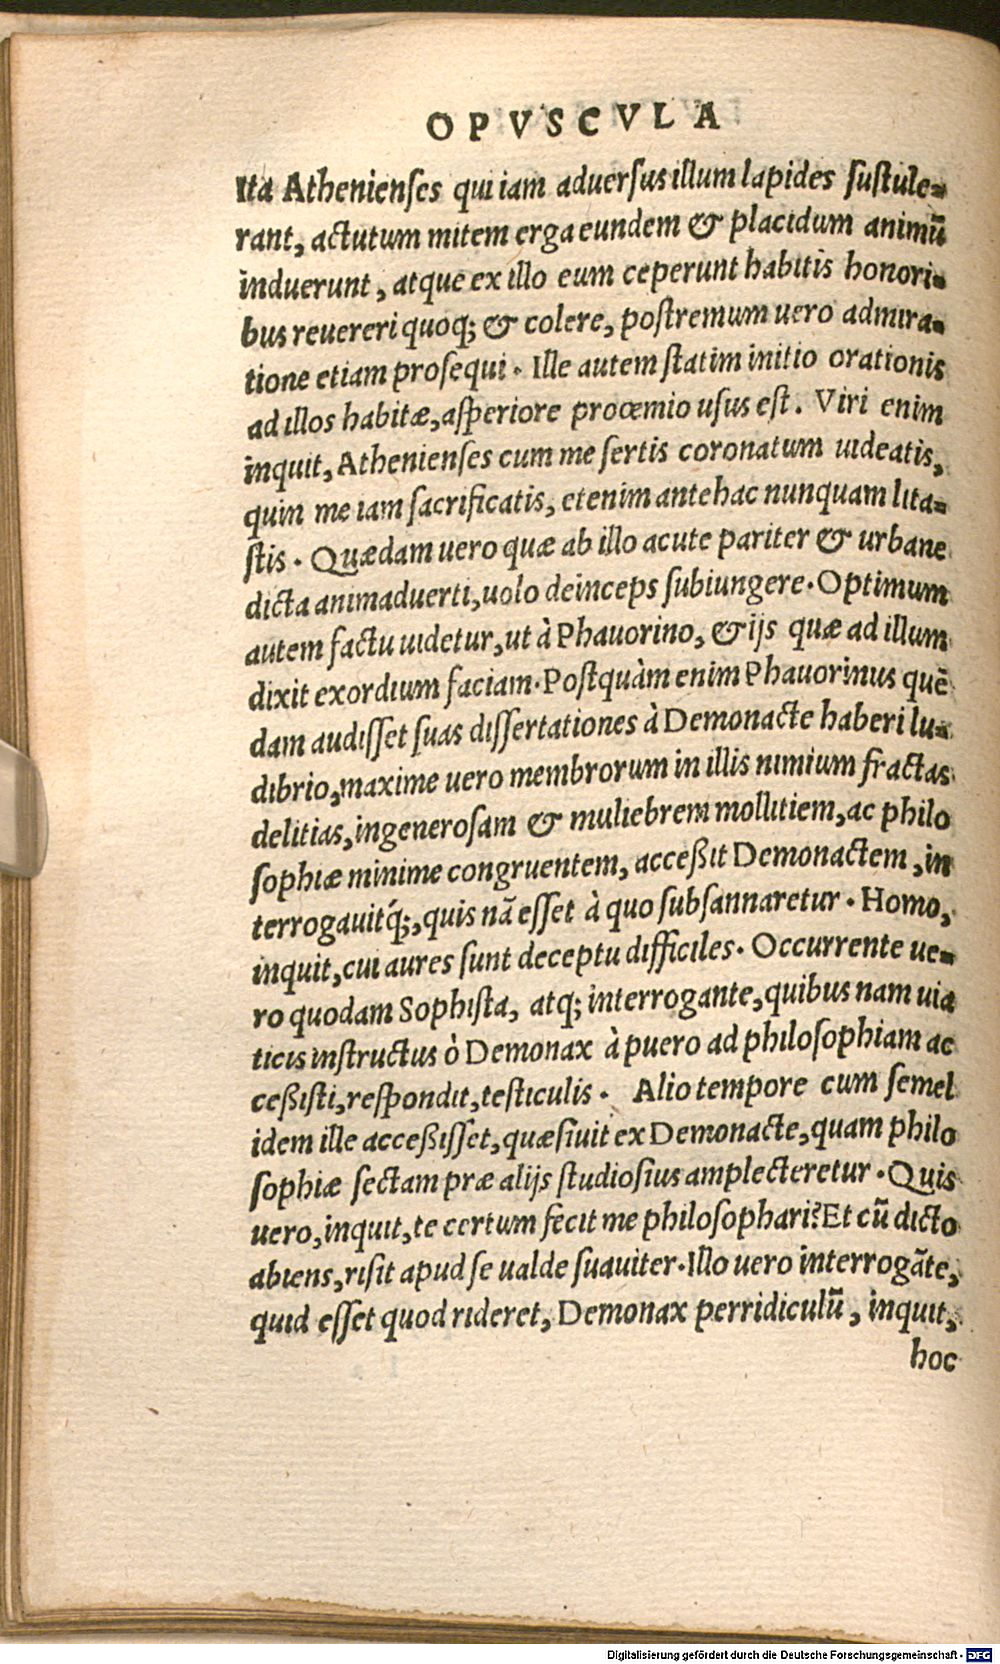 OPVSCVLA
Ita Athenienses qui iam aduersus illum lapides sustule-
rant, actutum mitem erga eundem & placidum animũ
induerunt, atque ex illo eum ceperunt habitis honori-
bus reuereri quoq; & colere, postremum uero admira-
tione etiam prosequi. Ille autem statim initio orationis
ad illos habitæ, asperiore proœmio usus est. Viri enim
inquit, Athenienses cum me sertis coronatum uideatis,
quin me iam sacrificatis, etenim antehac nunquam lita-
stis. Quædam uero quæ ab illo acute pariter & urbane
dicta animaduerti, uolo deinceps subiungere. Optimum
autem factu uidetur, ut à Phauorino, & ijs quæ ad illum
dixit exordium faciam. Postquàm enim Phauorinus quẽ
dam audisset suas dissertationes à Demonacte haberi lu-
dibrio, maxime uero membrorum in illis nimium fractas
delitias, ingenerosam & muliebrem mollitiem, ac philo
sophiæ minime congruentem, acceßit Demonactem, in
terrogauitq́;, quis nã esset à quo subsannaretur. Homo,
inquit, cui aures sunt deceptu difficiles. Occurrente ue-
ro quodam Sophista, atq; interrogante, quibus nam uia
ticis instructus ò Demonax à puero ad philosophiam ac
ceßisti, respondit, testiculis. Alio tempore cum semel
idem ille acceßisset, quæsiuit ex Demonacte, quam philo
sophiæ sectam præ alijs studiosius amplecteretur. Quis
uero, inquit, te certum fecit me philosophari? Et cũ dicto
abiens, risit apud se ualde suauiter. Illo uero interrogãte,
quid esset quod rideret, Demonax perridiculũ, inquit,
hoc
Digitalisierung gefördert durch die Deutsche Forschungsgemeinschaft - DFG